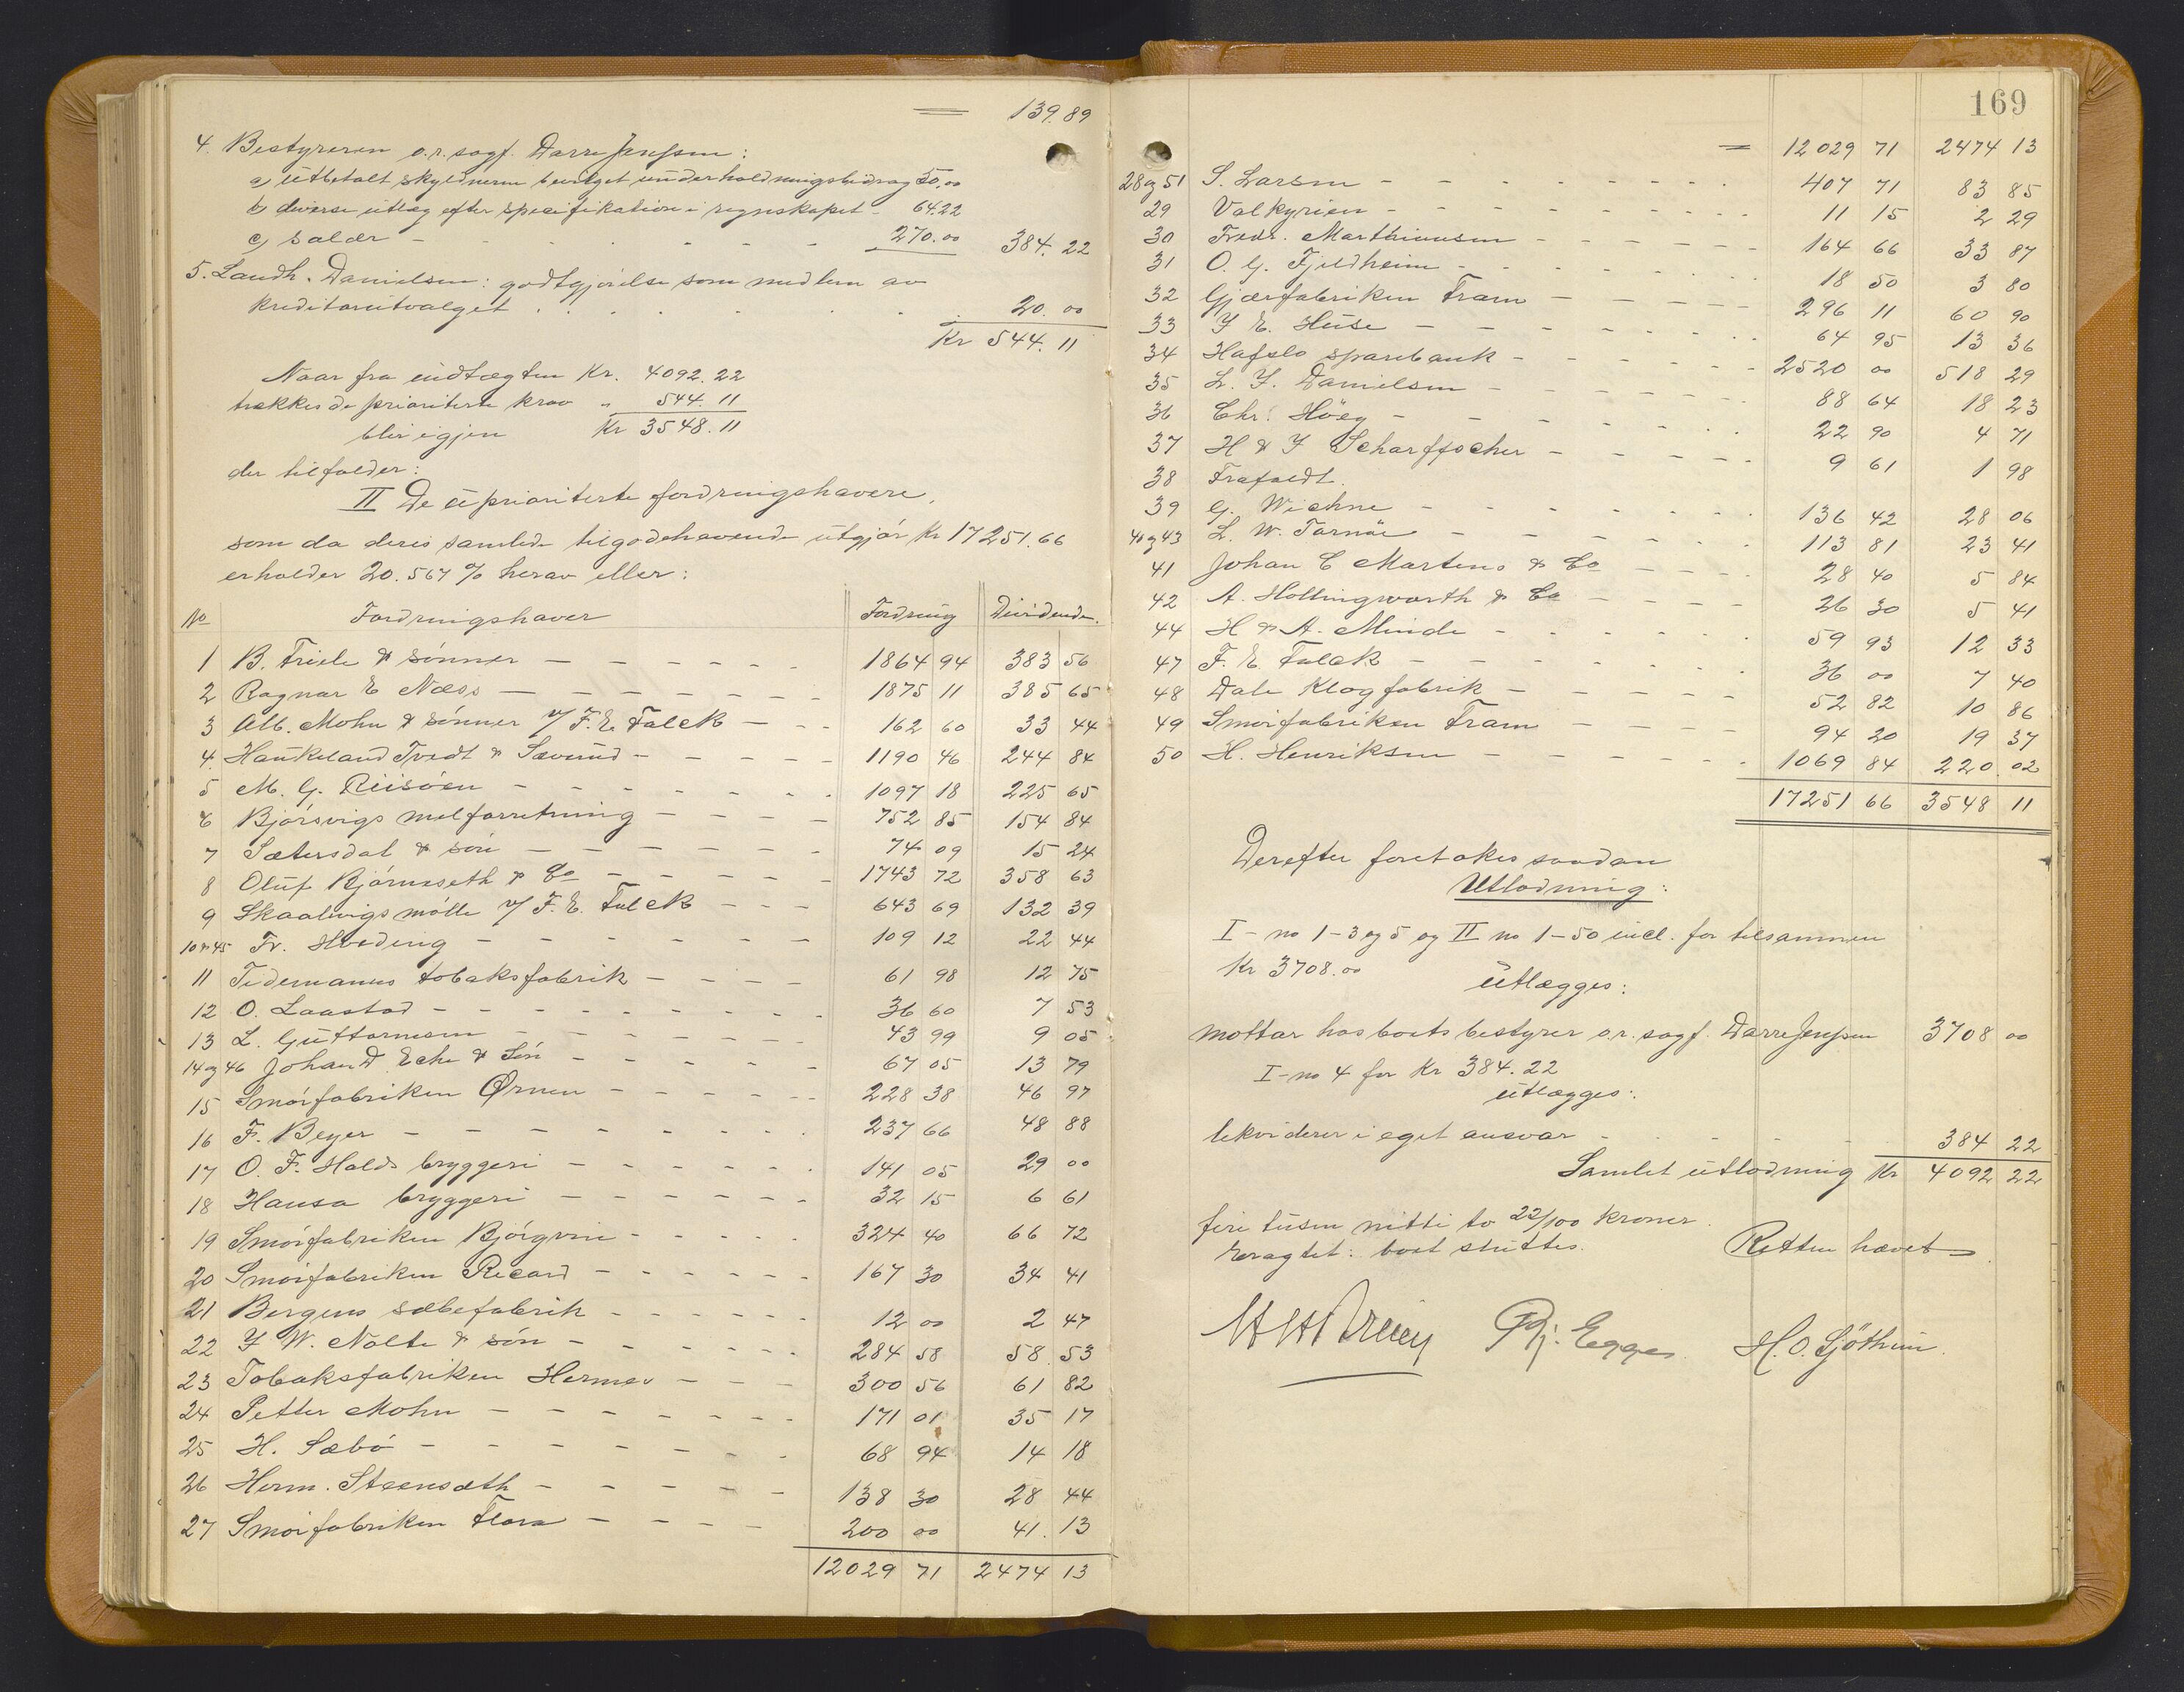 = 139.89
4. Bestyreren o.r.sagf. Darre Jenssen:
a) utbetalt skyldneren bevilget underholdningsbidrag 50.00
b) diverse utlæg efter specifikation i regnskapet - 64.22
c) salær - - - - - - 270.00 384.22
5. Landh. Danielsen: godtgjörelse som medlem av
kreditorutvalget . . . . . . . 20.00
Kr 544.11
Naar fra indtægten Kr. 4092.22
trækkes de prioriterte krav " 544.11
blir igjen Kr 3548.11
der tilfalder:
II De uprioriterte fordringshavere,
som da deres samlede tilgodehavende utgjör Kr 17251.66
erholder 20.567 % herav eller:
No Fordringshaver Fordring Dividende.
1 B. Friele & sönner - - - - - - 1864 94 383 56
2 Ragnar E Næss - - - - - - - 1875 11 385 65
3 Alb. Mohn & sönner v/ F. E. Falck - - - 162 60 33 44
4. Haukeland Tvedt & Sævrud - - - - - 1190 46 244 84
5 M. G. Riisöen - - - - - - - 1097 18 225 65
6 Bjórsvigs melforretning - - - - 752 85 154 84
7 Sætersdal & sön - - - - - - 74 09 15 24
8 Oluf Bjórnseth & Co - - - - - 1743 72 358 63
9 Skaalvigs mölle v/ F. E. Falck - - - 643 69 132 39
10 & 45 Fr. Hveding - - - - - - - 109 12 22 44
11 Tidemanns tobaksfabrik - - - - 61 98 12 75
12 O. Laastad - - - - - - - - 36 60 7 53
13 L. Guttormsen - - - - - - 43 99 9 05
14 og 46 Johan D. Behn & Sön - - - - - 67 05 13 79
15 Smörfabriken Ørnen - - - - - - 228 38 46 97
16 F. Beyer - - - - - - - - 237 66 48 88
17 O. F. Holds bryggeri - - - - - - 141 05 29 00
18 Hansa bryggeri - - - - - - 32 15 6 61
19 Smörfabriken Björgvin - - - - - 324 40 66 72
20 Smörfabriken Ricard - - - - - - 167 30 34 41
21 Bergens sæbefabrik - - - - - - 12 00 2 47
22 J W. Nolte & sön - - - - - - 284 58 58 53
23 Tobaksfabriken Hermes - - - - 300 56 61 82
24 Petter Mohn - - - - - - - 171 01 35 17
25 H. Sæbö - - - - - - - - 68 94 14 18
26 Herm. Steensæth - - - - - - 138 30 28 44
27 Smörfabriken Flora - - - - 200 00 41.13
12029 71 2474 13
169
= 12029 71 2474 13
28 og 51 S. Larsen - - - - - - - - 407 71 83 85
29 Valkyrien - - - - - - - - 11 15 2 29
30 Fredr. Marthinussen - - - - - - 164 66 33 87
31 O. G. Fjeldheim - - - - - - - 18 50 3 80
32 Gjærfabriken Fram - - - - - 296 11 60 90
33 J E. Huse - - - - - - - 64 95 13 36
34 Hafslo sparebank - - - - - - 2520 00 518 29
35 L. J. Danielsen - - - - - - 88 64 18 23
36 Chr. Höeg - - - - - - - 22 90 4 71
37 H & J Scharffscher - - - - - 9 61 1 98
38 Frafaldt.
39 G. Wiehne - - - - - - - 136 42 28 06
40 og 43 L. W. Tornöe - - - - - - - 113 81 23 41
41 Johan C Martens & Co - - - - 28 40 5 84
42 A. Hollingworth & Co - - - - 26 30 5 41
44 H & A. Minde - - - - - - 59 93 12 33
47 F. E. Falck - - - - - - - 36 00 7 40
48 Dale Klæfabrik - - - - - - 52 82 10 86
49 Smörfabriken Fram - - - - - 94 20 19 37
50 H. Henriksen - - - - - - 1069 84 220.02
17251 66 3548 11
Derefter foretokes saadan
Utlodning:
I - no 1-3 og 5 og II no 1-50 incl. for tilsammen
Kr 3708.00
utlægges:
mottar hos boets bestyrer o.r. sagf. Darre Jenssen 3708 00
I - no 4 for Kr 384.22
utlægges:
likviderer i eget ansvar - - - - - 384 22
Samlet utlodning Kr 4092 22
fire tusen nitti to 22/100 kroner.
Eragtet: boet sluttes. Retten hævet
Egge H. O. Sjötheim.